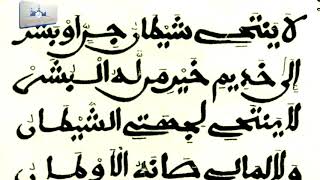 لا ينتحي شيطان جن او بشر
إلى خديم خير من له البشر
لا ينتحي لجهتي الشيطان
ولا لمالي صانه الأوطان